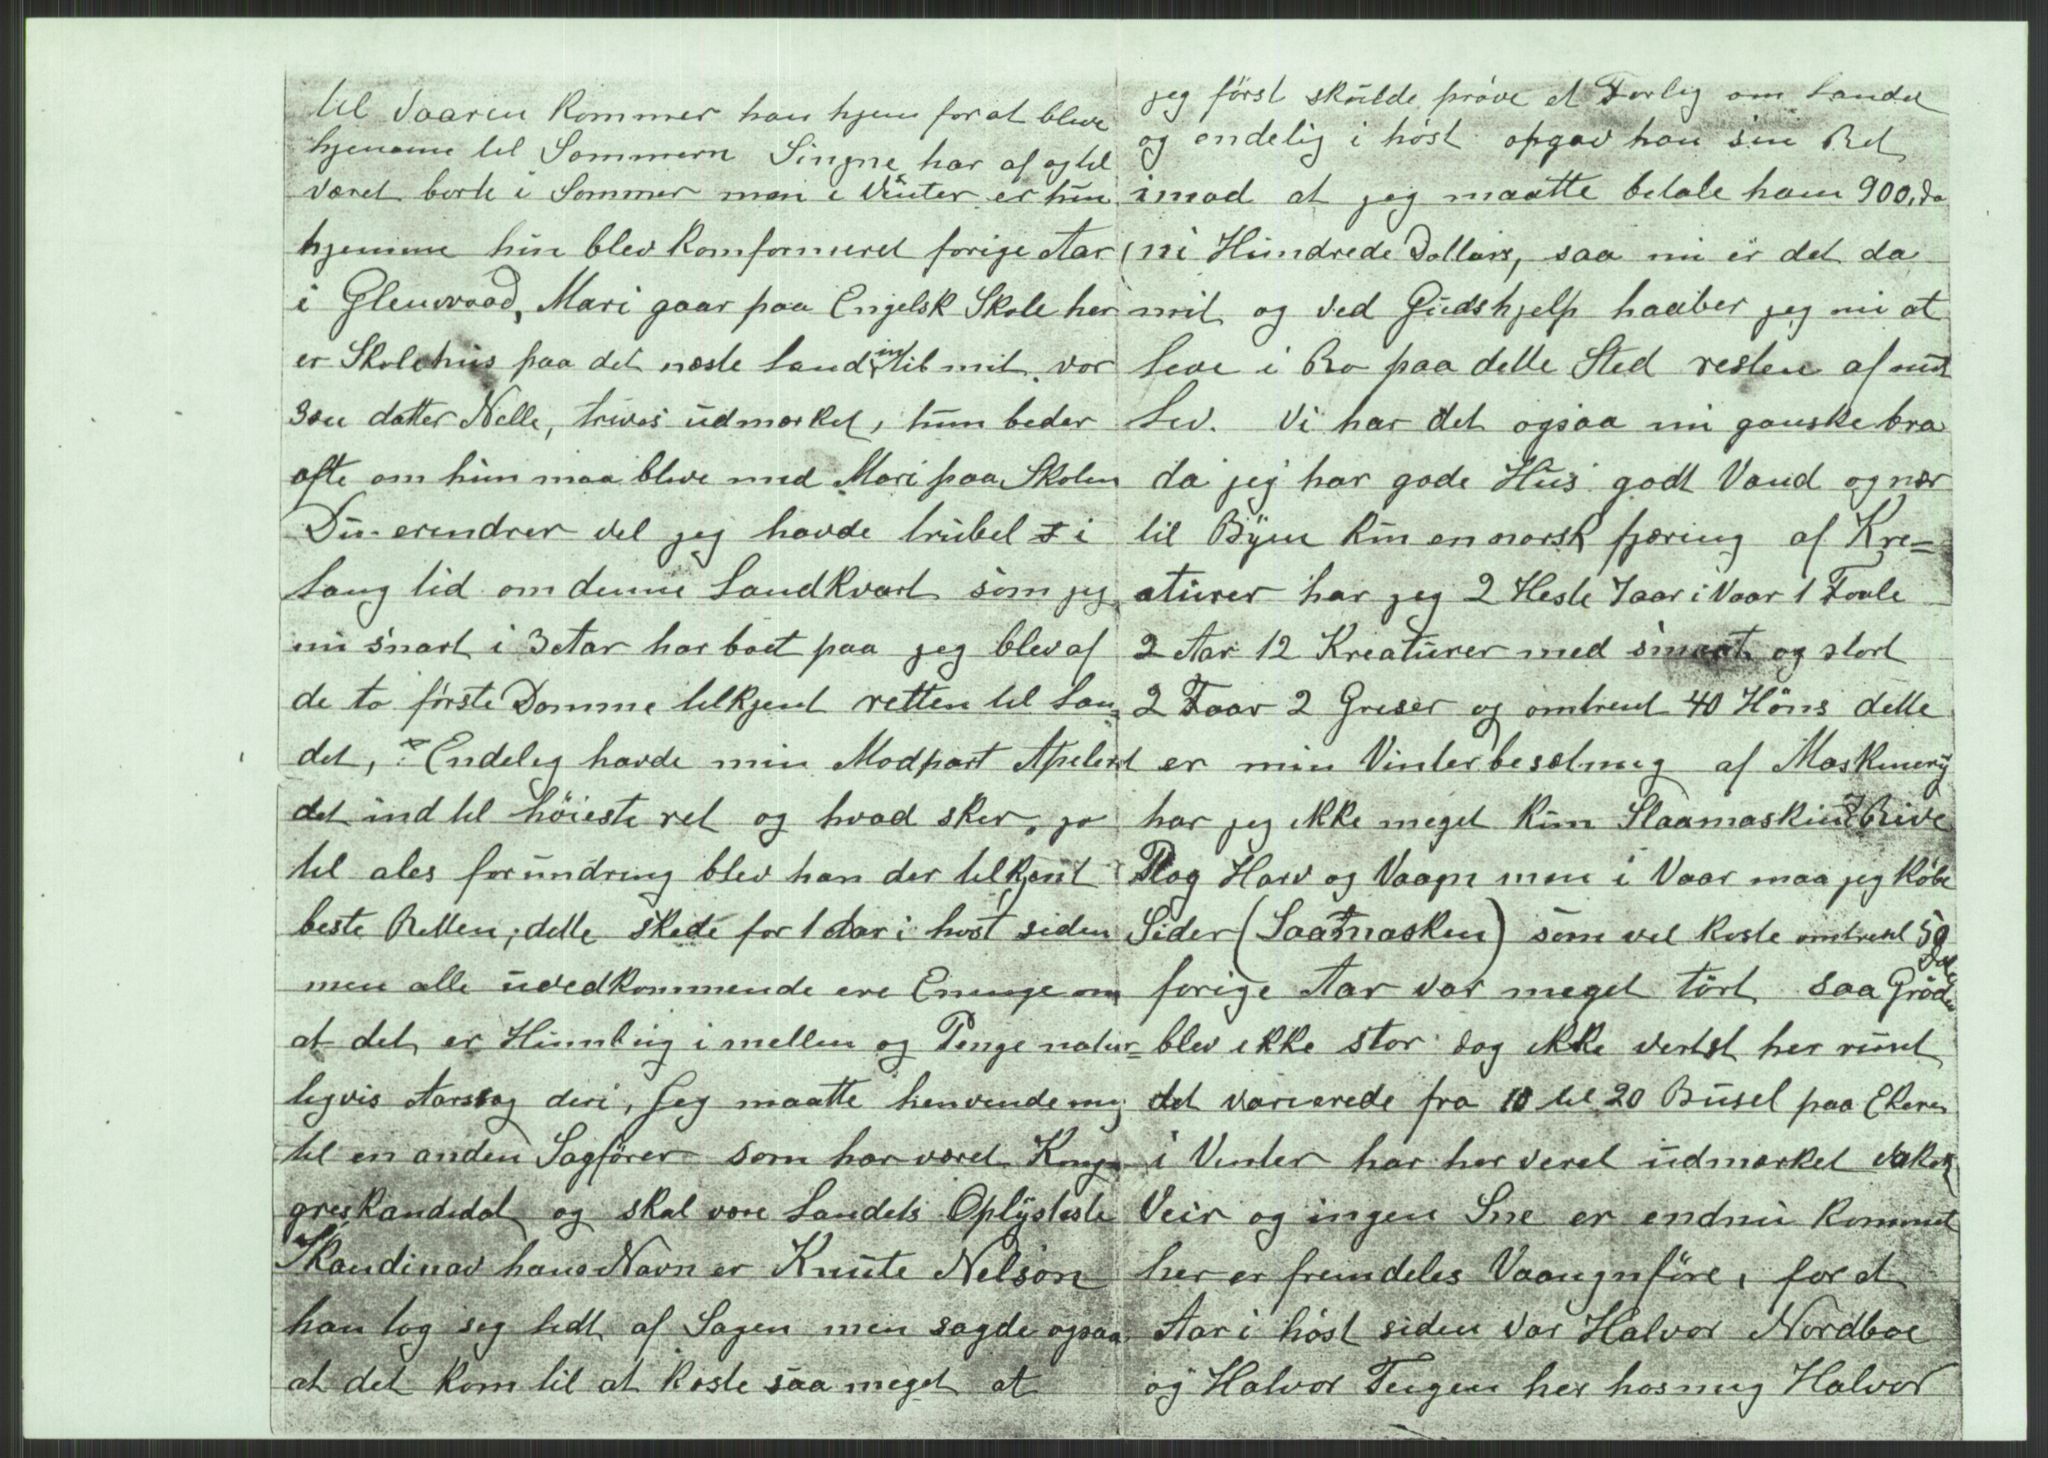 til Vaaren Kommer han hjem for at blive
hjemme til Sommern Singne har af og til
været borte i Sommer men i Vinter er hun
hjemme hun blev Komformeret forige Aar
i Glenwood, Mari gaar paa Engelsk Skole her
er Skolehus paa det næste Land intil mit vor
3die datter Nelle, trives udmærket, hun beder
ofte om hun maa blive med Mari paa Skolen
Du erindrer vel jeg havde trubel i
Lang tid om denne Landkvart som jeg
nu snart i 3 Aar har boet paa jeg blev af
de to förste Domme tilkjent retten til Lan=
det, Endelig havde min Modpart Apelert
det ind til höieste ret og hvad sker, jo
til ales forundring blev han der tilkjent
beste Retten; dette skede for 1 Aar i höst siden
men alle uvedkommende ere Eninge om
at det er Humbug i mellem og Penge natur=
ligvis Aarsag deri, Jeg maatte henvende mig
til en anden Sagförer som har været Kong=
greskandidat og skal være Landets Oplysteste
Skandinav hans Navn er Knute Nelson
han tog seg lidt af Sagen men sagde ogsaa
at det kom til at koste saa meget at
jeg först skulde pröve et Forlig om Landet
og endelig i höst opgav han sin Ret
imod at jeg maatte betale ham 900, do
(ni Hundrede Dollars, saa nu er det da
mit og ved Guds hjelp haaber jeg nu at
Leve i Ro paa dette Sted resten af mit
Liv. Vi har det ogsaa nu ganske bra
da jeg har gode Hus godt Vand og nær
til Byen kun en norsk fjæring af Kre=
aturer har jeg 2 Heste 1 aar i Vaar 1 Foule
2 Aar 12 Kreaturer med smaat og stort
2 Faar 2 Griser og omtrent 40 Höns dette
er min Vinterbesætning af Maskinery
har jeg ikke meget kun Slaamaskine Rive
Plog Harv og Vaagn men i Vaar maa jeg köbe
Sider (Saamaskin) som vel koste omtrent 50
Dol
forige Aar var meget tört saa Gröden
blev ikke stor dog ikke verst her rundt
det varierede fra 10 til 20 Busel paa Ekeren
i Vinter har her veret udmærket vakert
Veir og ingen Sne er endnu kommet
her er fremdeles Vaangnföre, for et
Aar i höst siden var Halvor Nordboe
og Halvor Teigen her hos mig Halvor